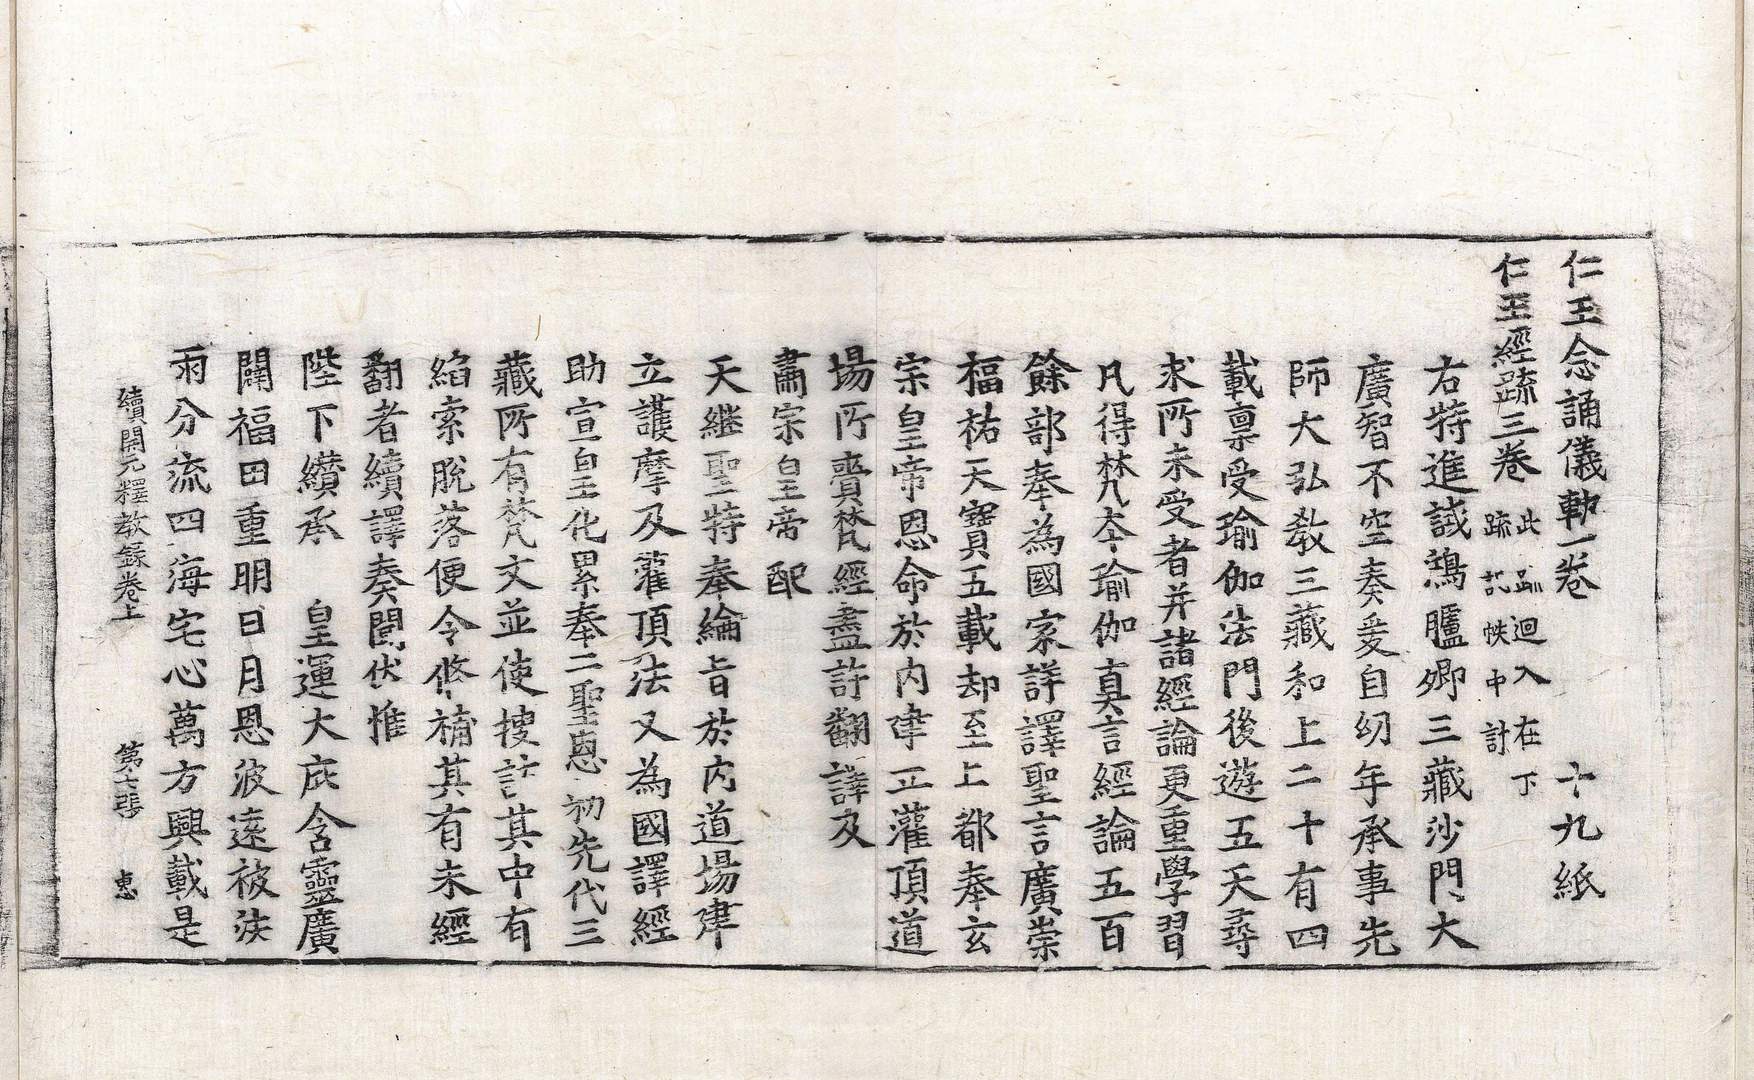 仁王念誦儀軌一卷 十九紙
仁王經疏三卷 此疏迴入在下疏記帙中計
右特進試鴻臚卿三藏沙門大
廣智不空奏爰自幼年承事先
師大弘教三藏和上二十有四
載禀受瑜伽法門後遊五天尋
求所未受者并諸經論更重學習
凡得梵夲瑜伽真言經論五百
餘部奉為國家詳譯聖言廣崇
福祐天寶五載却至上都奉玄
宗皇帝恩命於内建立灌頂道
場所賷梵經盡許翻譯及
肅宗皇帝配
天継聖特奉綸旨於内道場建
立護摩及灌頂法又為國譯經
助宣皇化累奉二聖恩勑先代三
藏所有梵文並使搜訪其中有
縚索脫落便令修補其有未經
翻者續譯奏聞伏惟
陛下纘承 皇運大庇含靈廣
闢福田重明日月恩波遠被法
雨分流四海宅心萬方興載是
續開元釋教錄卷上 第七張 惠